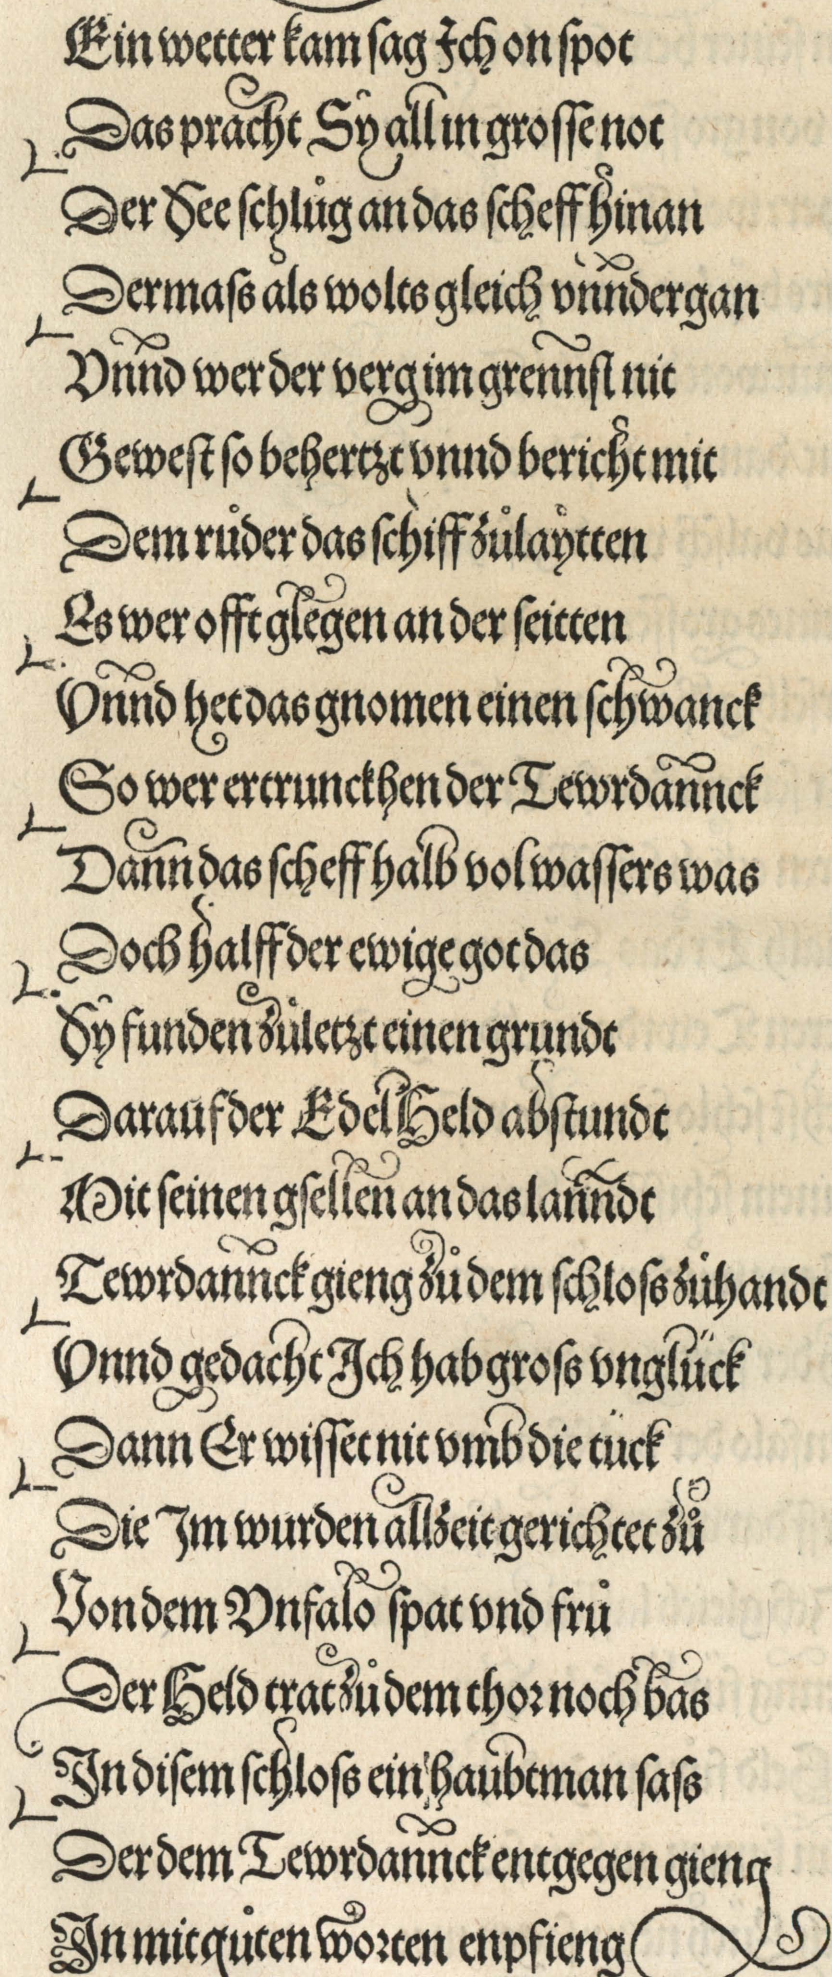 Ein wetter kam sag Ich on spot
Das pracht Sÿ all in grosse not
Der See schlůg an das scheff hinan
Dermass als wolts gleich vnndergan
Vnnd wer der verg im grennsl nit
Gewest so behertzt vnnd bericht mit
Dem růder das schiff zůlaÿtten
Es wer offt glegen an der seitten
Vnnd het das gnomen einen schwanck
So wer ertrunckhen der Tewrdannck
Dann das scheff halb vol wassers was
Doch halff der ewige got das
Sÿ funden zůletzt einen grundt
Darauf der Edel Held abstundt
Mit seinen gsellen an das lanndt
Tewrdannck gieng zů dem schloss zůhandt
Vnnd gedacht Ich hab gross vnglück
Dann Er wisset nit vmb die tück
Die Im wurden allzeit gerichtet zů
Von dem Vnfalo spat vnd frů
Der Held trat zů dem thor noch bas
In disem schloss ein haubtman sass
Der dem Tewrdannck entgegen gieng
In mit gůten worten enpfieng